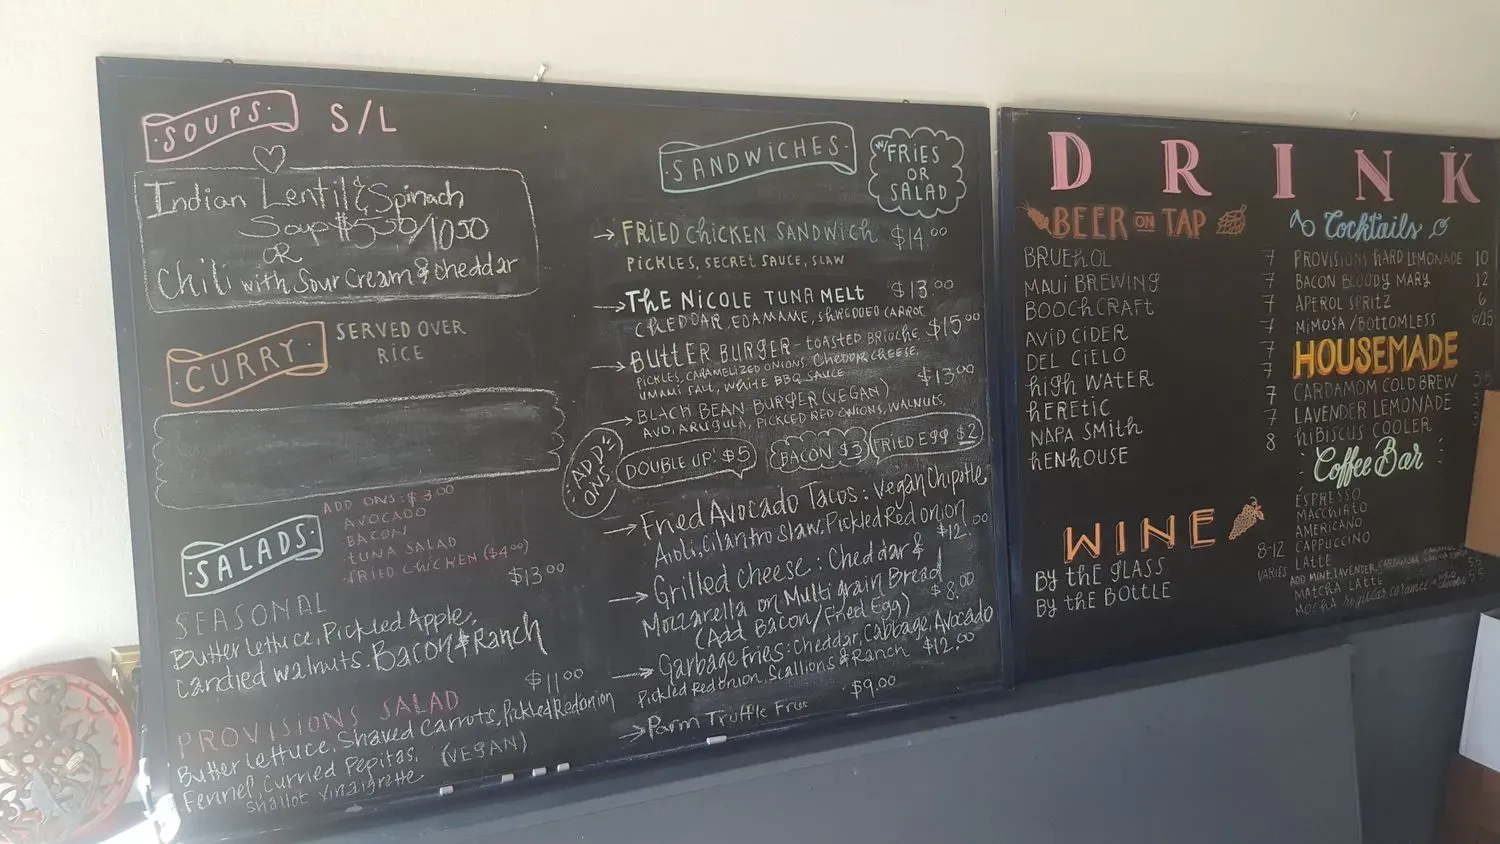 SOUPS S/L
Indian Lentil & Spinach
Soup $5.50/10.50
OR
Chili with Sour Cream & Cheddar
CURRY
SERVED OVER
RICE
ADD ONS: $3.00
AVOCADO
BACON
TUNA SALAD
FRIED CHICKEN ($4.00)
SALADS
$13.00
SEASONAL
Butter lettuce, Pickled Apple,
Candied walnuts. Bacon & Ranch
$11.00
PROVISIONS SALAD
Butter lettuce, Shaved Carrots, Pickled Red onion
Fennel, Curried Pepitas, (VEGAN)
Shallot Vinaigrette
SANDWICHES
W/ FRIES
OR
SALAD
→ FRIED CHICKEN SANDWICH $14.00
PICKLES, SECRET SAUCE, SLAW
→ THE NICOLE TUNA MELT $13.00
CHEDDAR, EDAMAME, SHREDDED CARROT
→ BUTTER BURGER - TOASTED BRIOCHE, $15.00
PICKLES, CARAMELIZED ONIONS, CHEDDR CHEESE,
UMAMI SALT, WHITE BBQ SAUCE
→ BLACH BEAN BURGER (VEGAN) $13.00
AVO, ARUGULA, PICKLED RED ONIONS, WALNUTS,
ADD ONS
DOUBLE UP! $5
BACON $3
FRIED EGG $2
→ Fried Avocado Tacos: Vegan Chipotle
Aioli, Cilantro Slaw, Pickled Red onion
$12.00
→ Grilled cheese: Cheddar &
Mozzarella on Multi grain Bread
(Add Bacon/Fried Egg) $8.00
→ Garbage Fries: Cheddar, Cabbage, Avocado
Pickled Red onion, Scallions & Ranch $12.00
→ Parm Truffle Fries $9.00
DRINK
BEER ON TAP
BRUEHOL 7
MAUI BREWING 7
BOOCHCRAFT 7
AVID CIDER 7
DEL CIELO 7
HIGH WATER 7
HERETIC 7
NAPA SMITH 8
HENHOUSE
WINE
8-12
VARIES
BY THE GLASS
BY THE BOTTLE
Cocktails
PROVISIONS HARD LEMONADE 10
BACON BLOODY MARY 12
APEROL SPRITZ 6
MIMOSA/BOTTOMLESS 6/15
HOUSEMADE
CARDAMOM COLD BREW 3.5
LAVENDER LEMONADE 3
HIBISCUS COOLER 3
Coffee Bar
ESPRESSO
MACCHIATO
AMERICANO
CAPPUCCINO
LATTE
ADD MINT, LAVENDER, CARDAMOM, CARAMEL
MATCHA LATTE 5.5
MOCHA regular, caramel